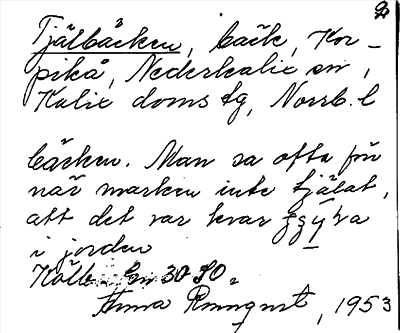 Tjälbäcken, bäck, Kor-
pikå, Nederkalix sn,
Kalix doms lg, Norrb. l
bäcken. Man sa ofta förr
när marken inte tjälat,
att det var kvar
i jorden
30 SO.
Anna Rönnqvist, 1953